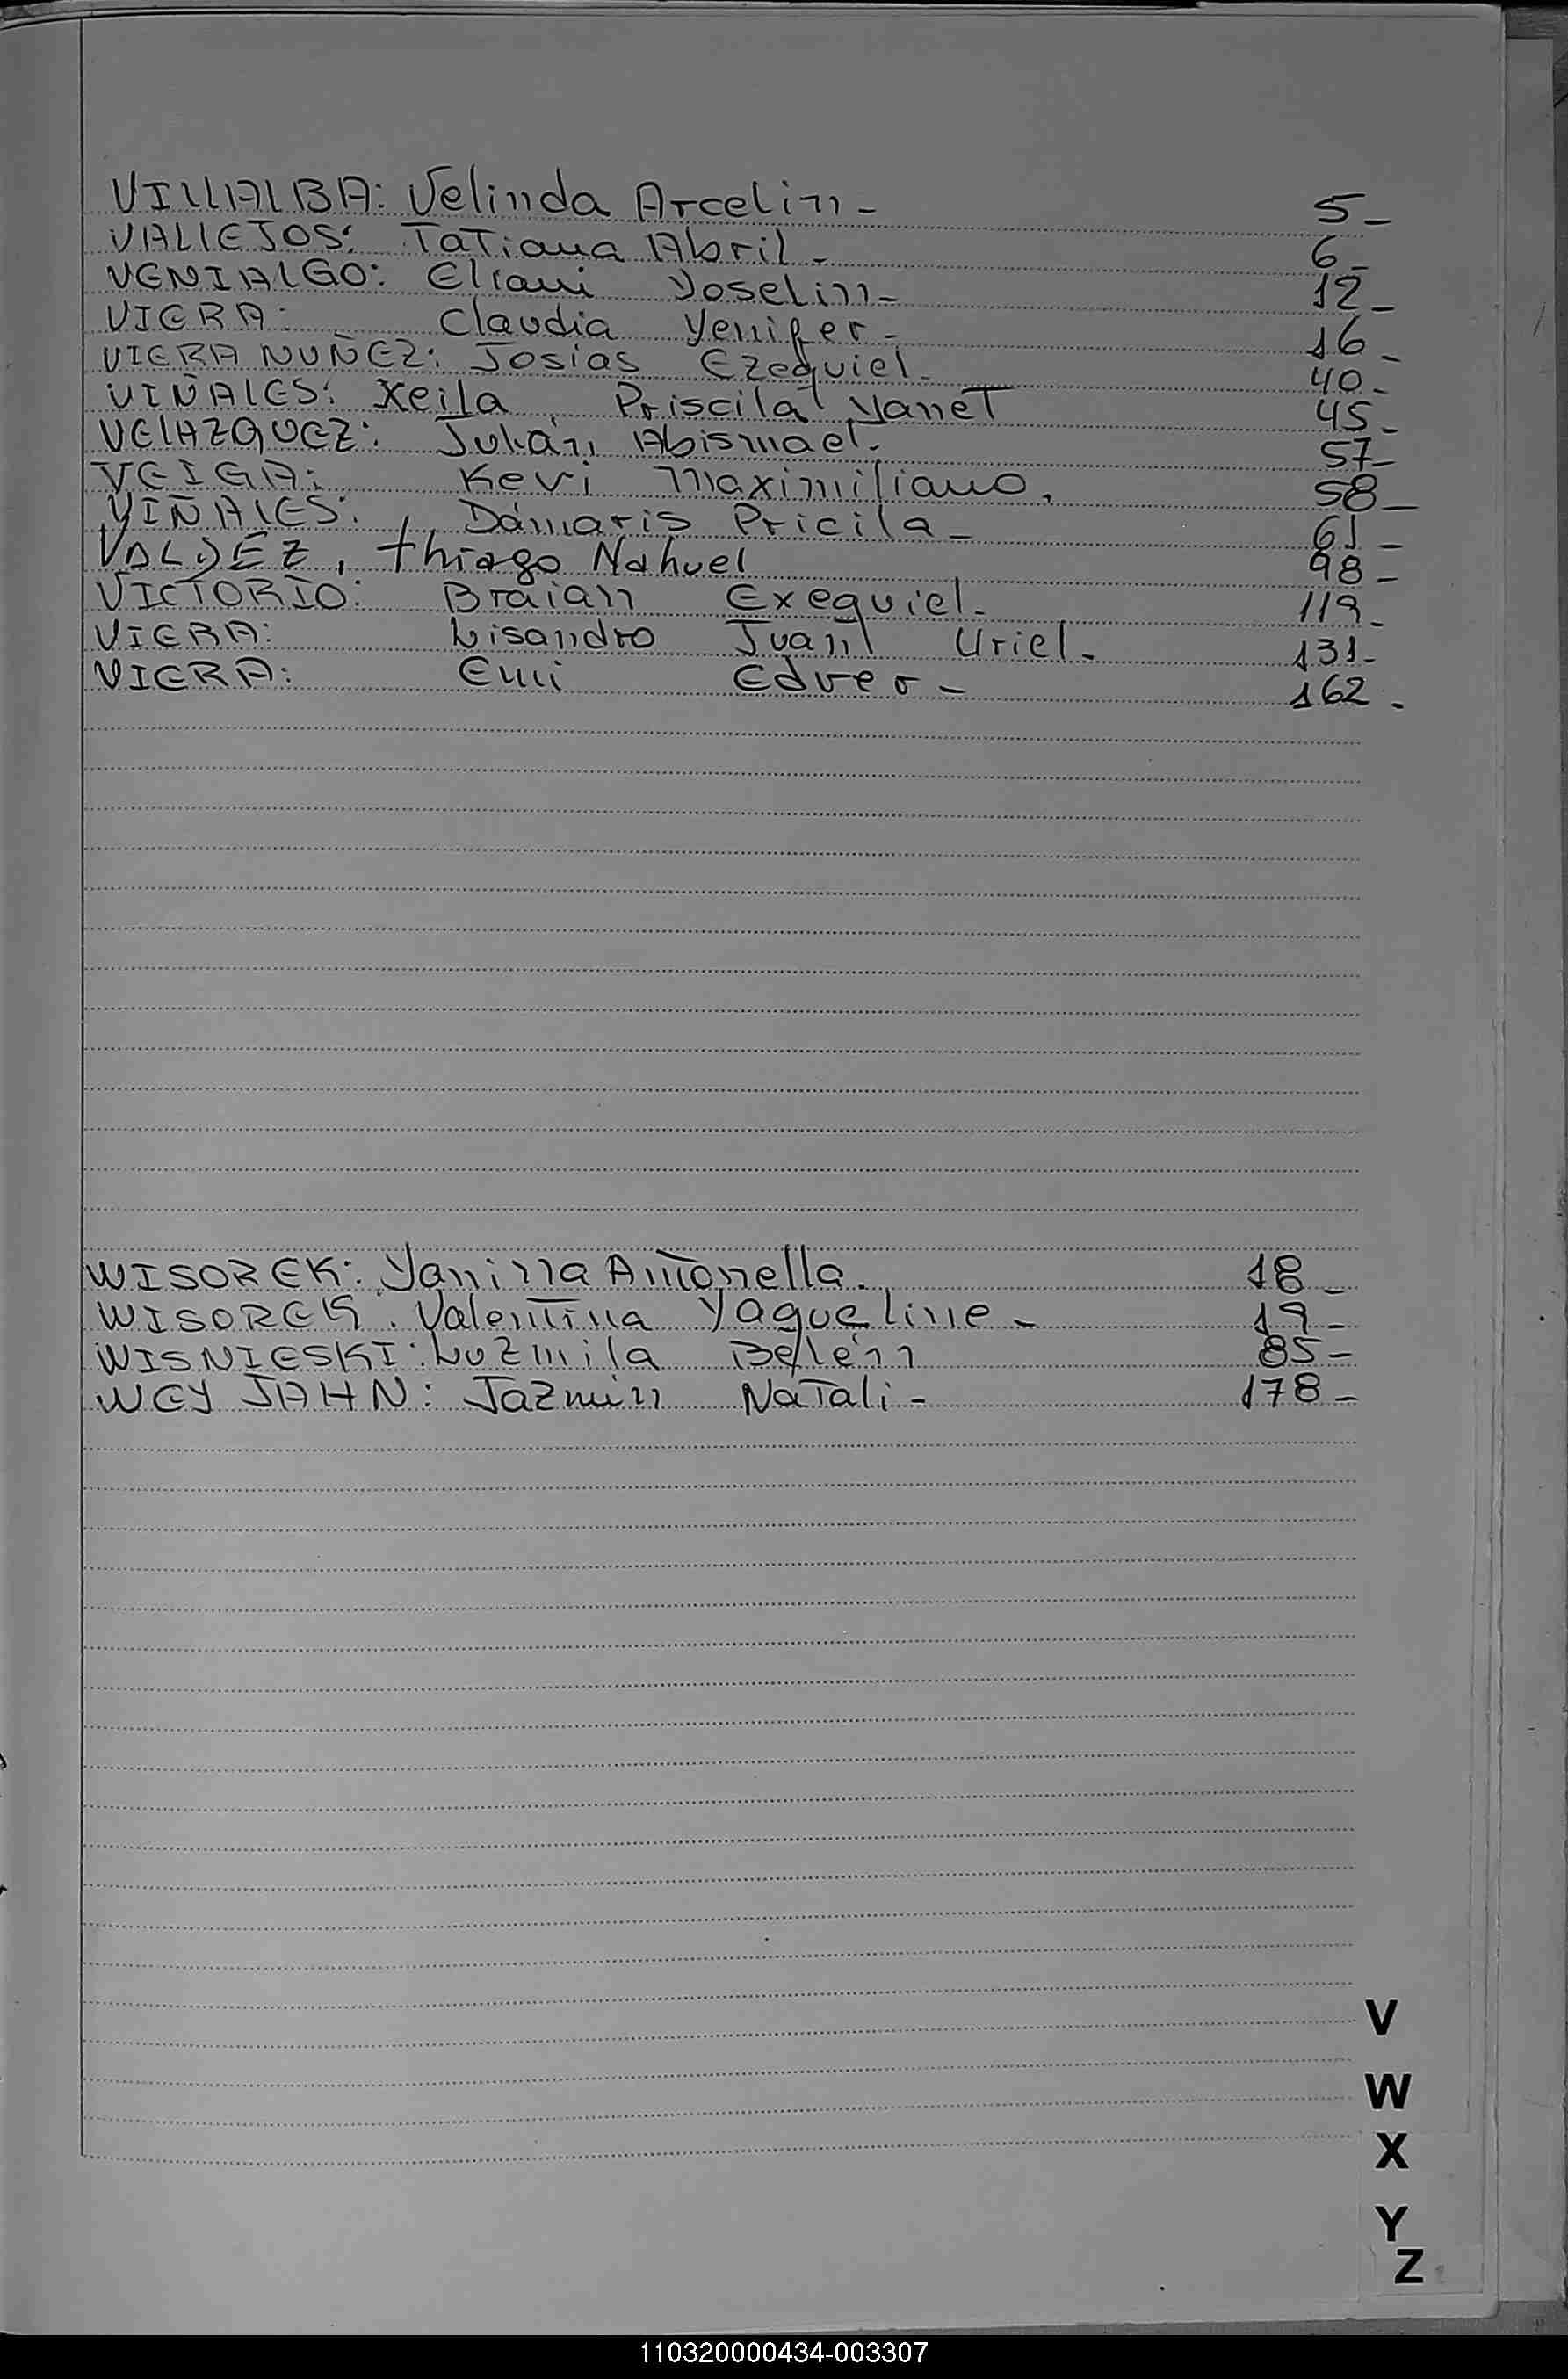 VILLALBA: Velinda Arcelin- 5-
VALLEJOS: Tatiana Abril- 6-
VENIALGO: Eliani Yoselin- 12-
VIERA: Claudia Yenifer- 16-
VIERA NUÑEZ: Josías Ezequiel- 40-
VIÑALES: Keila Priscila Yanet 45-
VELAZQUEZ: Julián Abismael- 57-
VEIGA: Kevi Maximiliano. 58-
VIÑALES: Dámaris Pricila- 61-
VALDEZ, thiago Nahuel 98-
VICTORIO: Braian Exequiel- 119-
VIERA: Lisandro Juan Uriel- 131-
VIERA: Emi Edver- 162-
WISOREK: Yanina Antonella. 18-
WISOREK. Valentina Yaqueline- 19-
WISNIESKI: Luzmila Belén 85-
WEY JAHN: Jazmin Natali- 178-
V
W
X
Y
Z
110320000434-003307